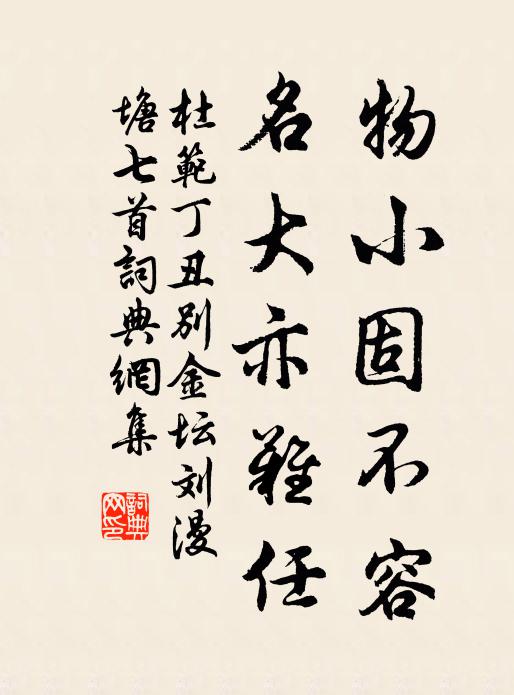 物小固不容
名大亦難任
杜範丁丑别金坛刘漫
塘七首詞典網集
詞典網印